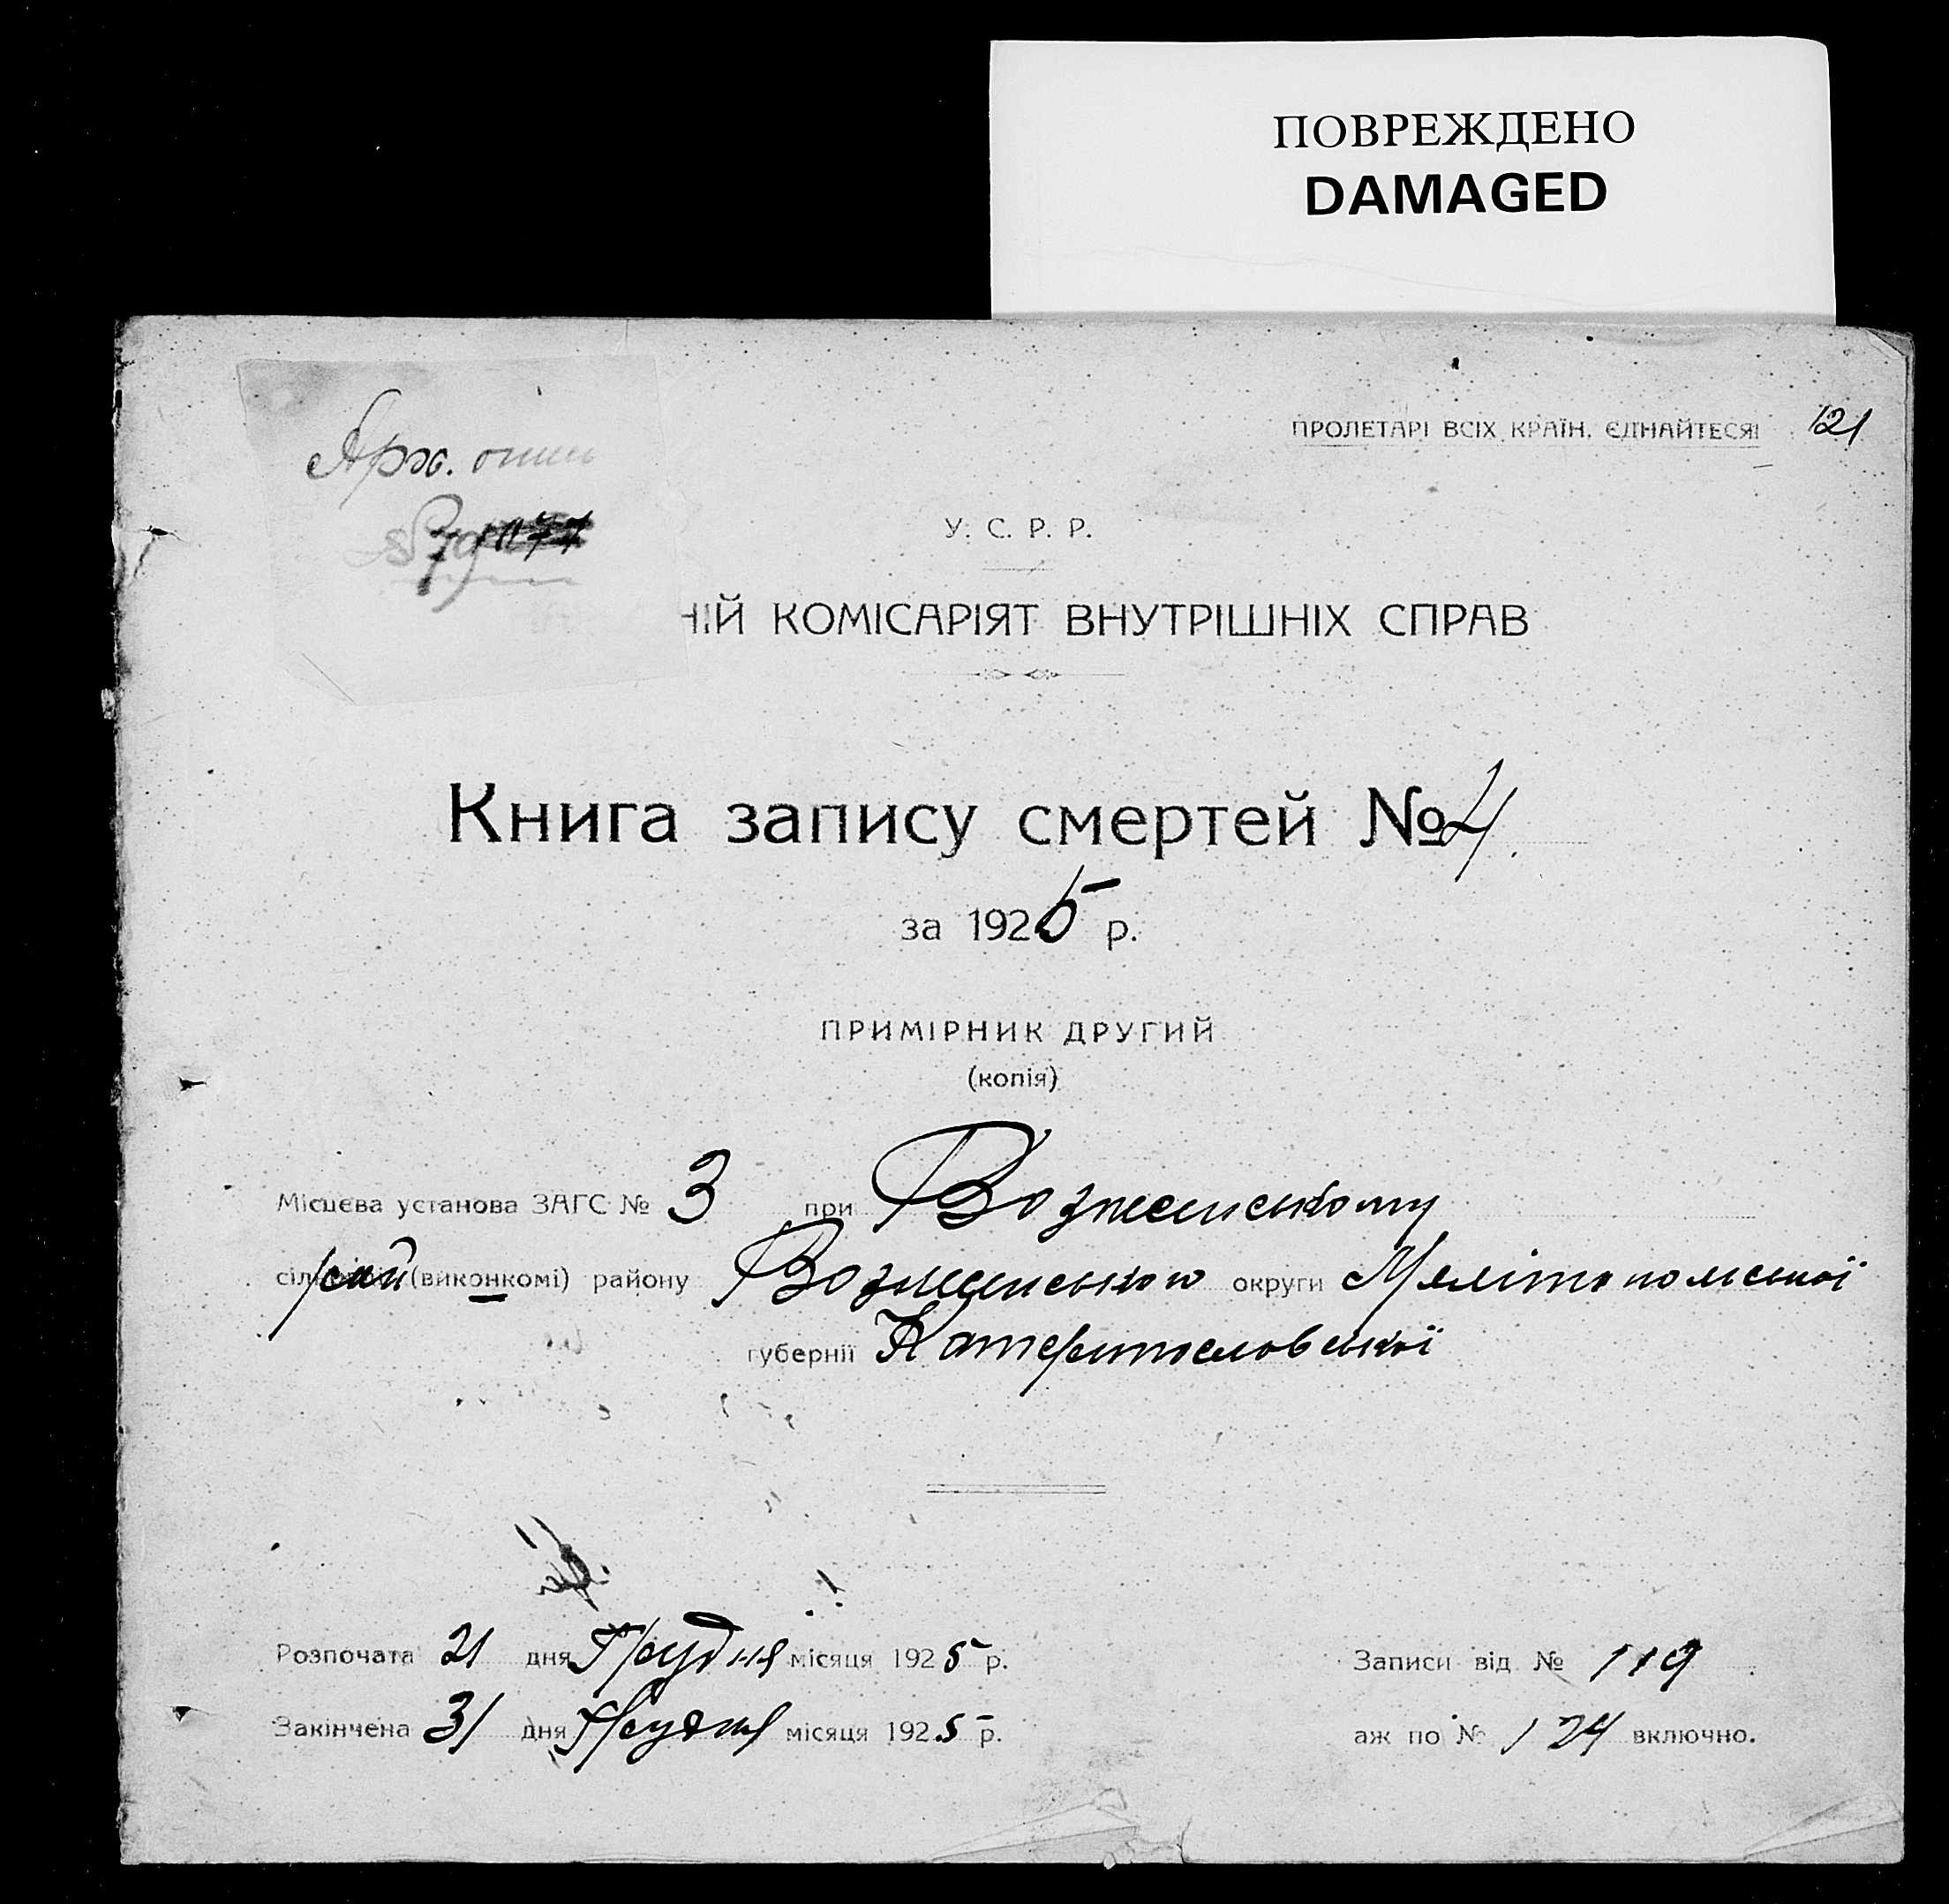 ПОВРЕЖДЕНО
DAMAGED
Арх. опись
ПРОЛЕТАРІ ВСІХ КРАЇН, ЄДНАЙТЕСЯ! 121
У. С. Р. Р.
НІЙ КОМІСАРІЯТ ВНУТРІШНІХ СПРАВ
Книга запису смертей № 4.
за 1925 р.
ПРИМІРНИК ДРУГИЙ
(копія)
Місцева установа ЗАГС № 3 при Вознесенському
рай (виконкомі) району Вознесенського округи Мелітопольської
губернії Катеринославської
Розпочата 21 дня Грудня місяця 1925 р. Записи від № 119
Закінчена 31 дня Грудня місяця 1925 р. аж по № 124 включно.